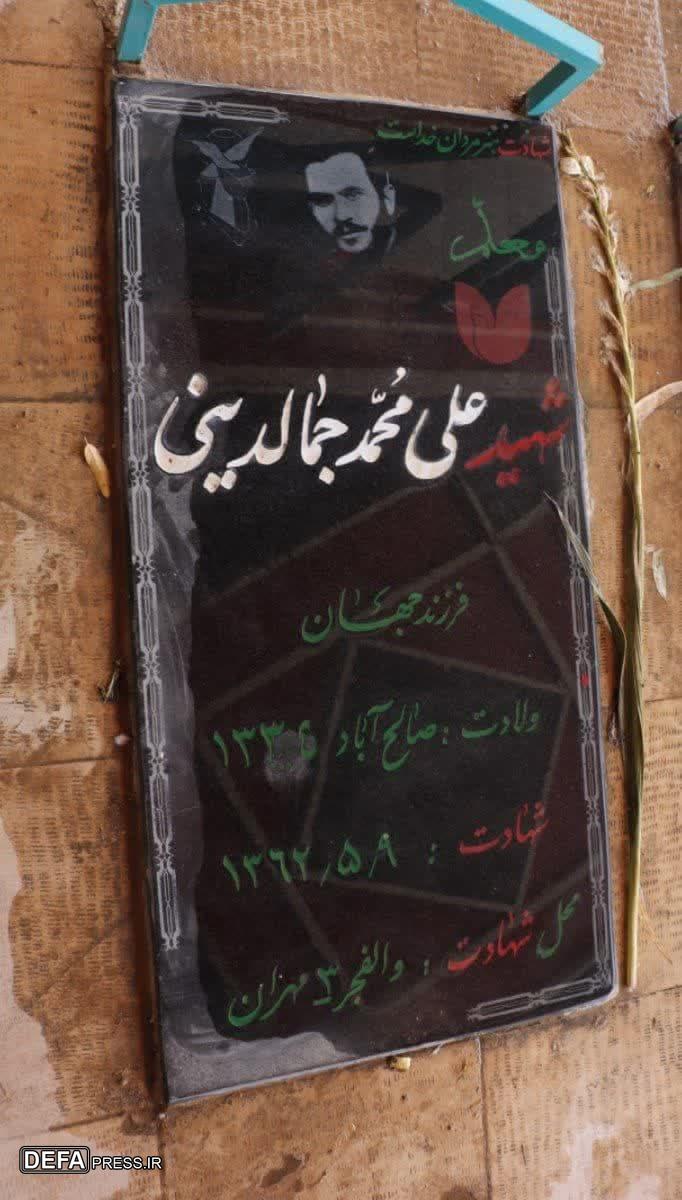 شهادت هنر مردان خداست
معلّم
شهید علی مُحمّد جمالدینی
فرزند جهان
ولادت : صالح آباد ۱۳۳۵
شهادت : ۱۳۶۲٫۵٫۹
محل شهادت : والفجر ۳ مهران
DEFA PRESS.IR